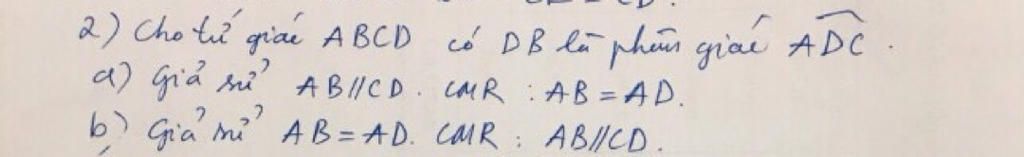 2) Cho tứ giác ABCD có DB là phân giác \widehat{ADC}.
a) Giả sử AB//CD. CMR : AB = AD.
b) Giả sử AB = AD. CMR : AB//CD.